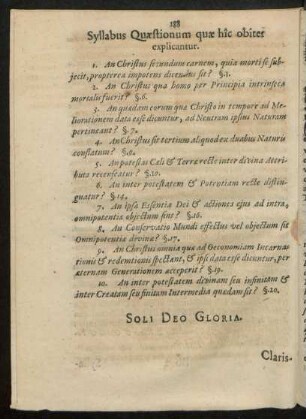 188
Syllabus Quæstionum quæ hîc obiter
explicantur.
1. An Christus secundum carnem, quia morti se sub-
jecit, propterea impotens dicendus sit? §.5.
2. An Christus qua homo per Principia intrinseca
mortalis fuerit? §.6.
3. An quædam eorum quæ Christo in tempore ad Me-
liorationem data esse dicuntur, ad Neutram ipsius Naturam
pertineant? §.7.
4. An Christus sit tertium aliquod ex duabus Naturis
conflatum? §.
5. An potestas Cœli & Terræ recte inter divina Attri-
buta recenseatur? §.10.
6. An inter potestatem & Potentiam recte distin-
guatur? §.14.
7. An ipsa Essentia Dei & actiones ejus ad intra,
omnipotentiæ objectum sint? §.16.
8. An Conservatio Mundi effectus vel objectum sit
Omnipotentiæ divinæ? §.17.
9. An Christus omnia quæ ad Oeconomiam Incarna-
tionis & redemtionis spectant, & ipsi data esse dicuntur, per
æternam Generationem acceperit? §.19.
10. An inter potestatem divinam seu infinitam &
inter Creatam seu finitam Intermedia quædam sit? §.20.
SOLI DEO GLORIA.
Claris-